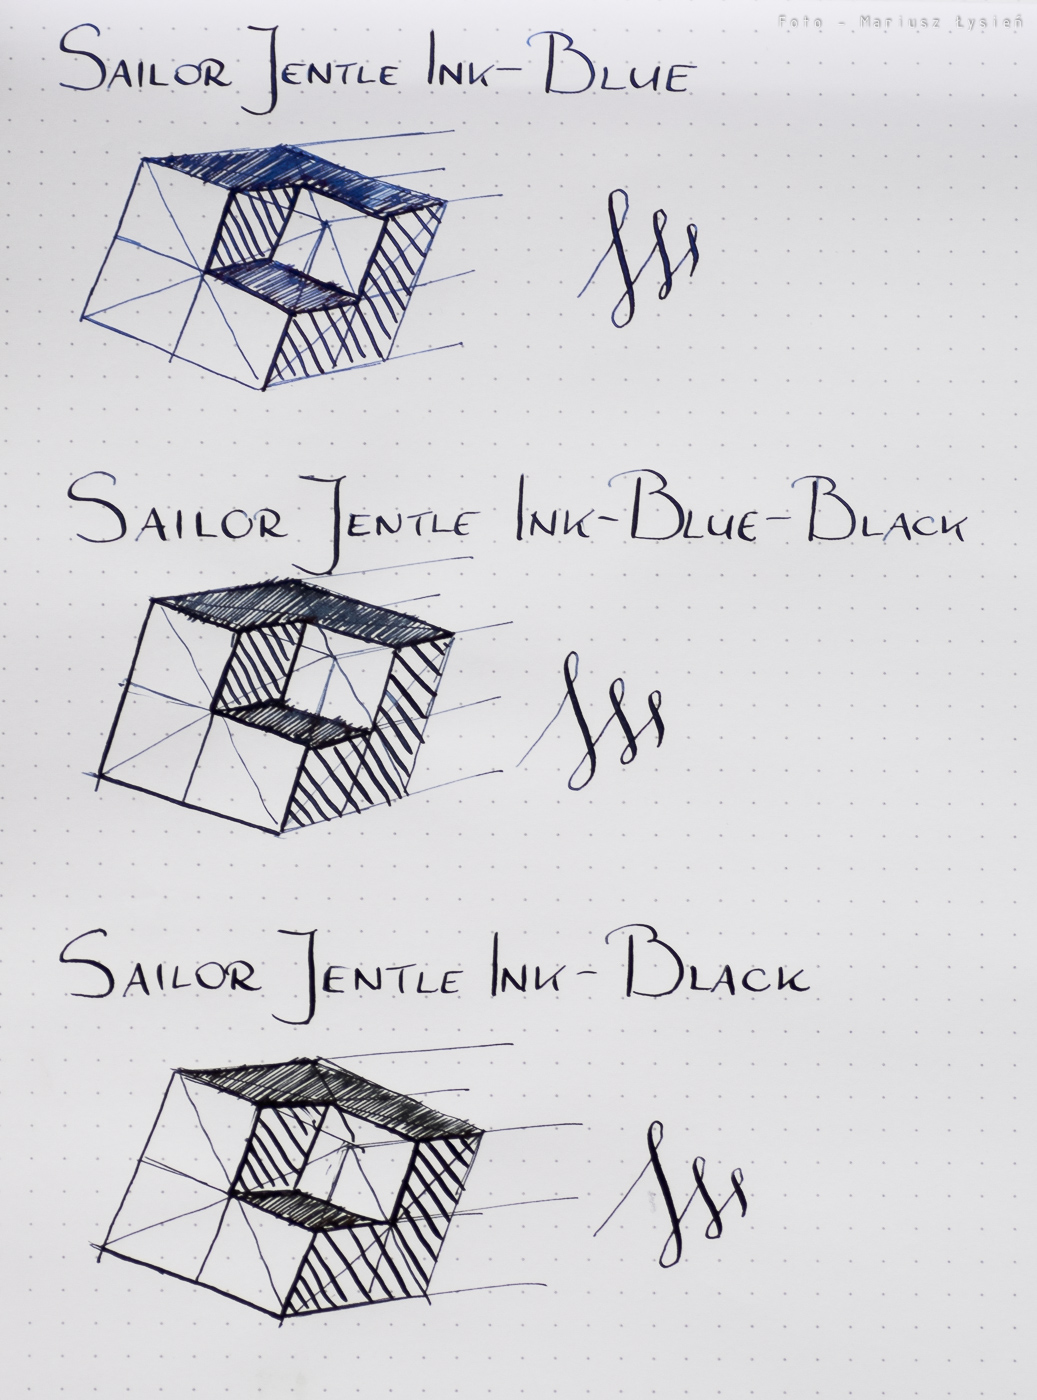 Foto - Mariusz Łysień
SAILOR JENTLE INK-BLUE
SAILOR JENTLE INK-BLUE-BLACK
SAILOR JENTLE INK-BLACK